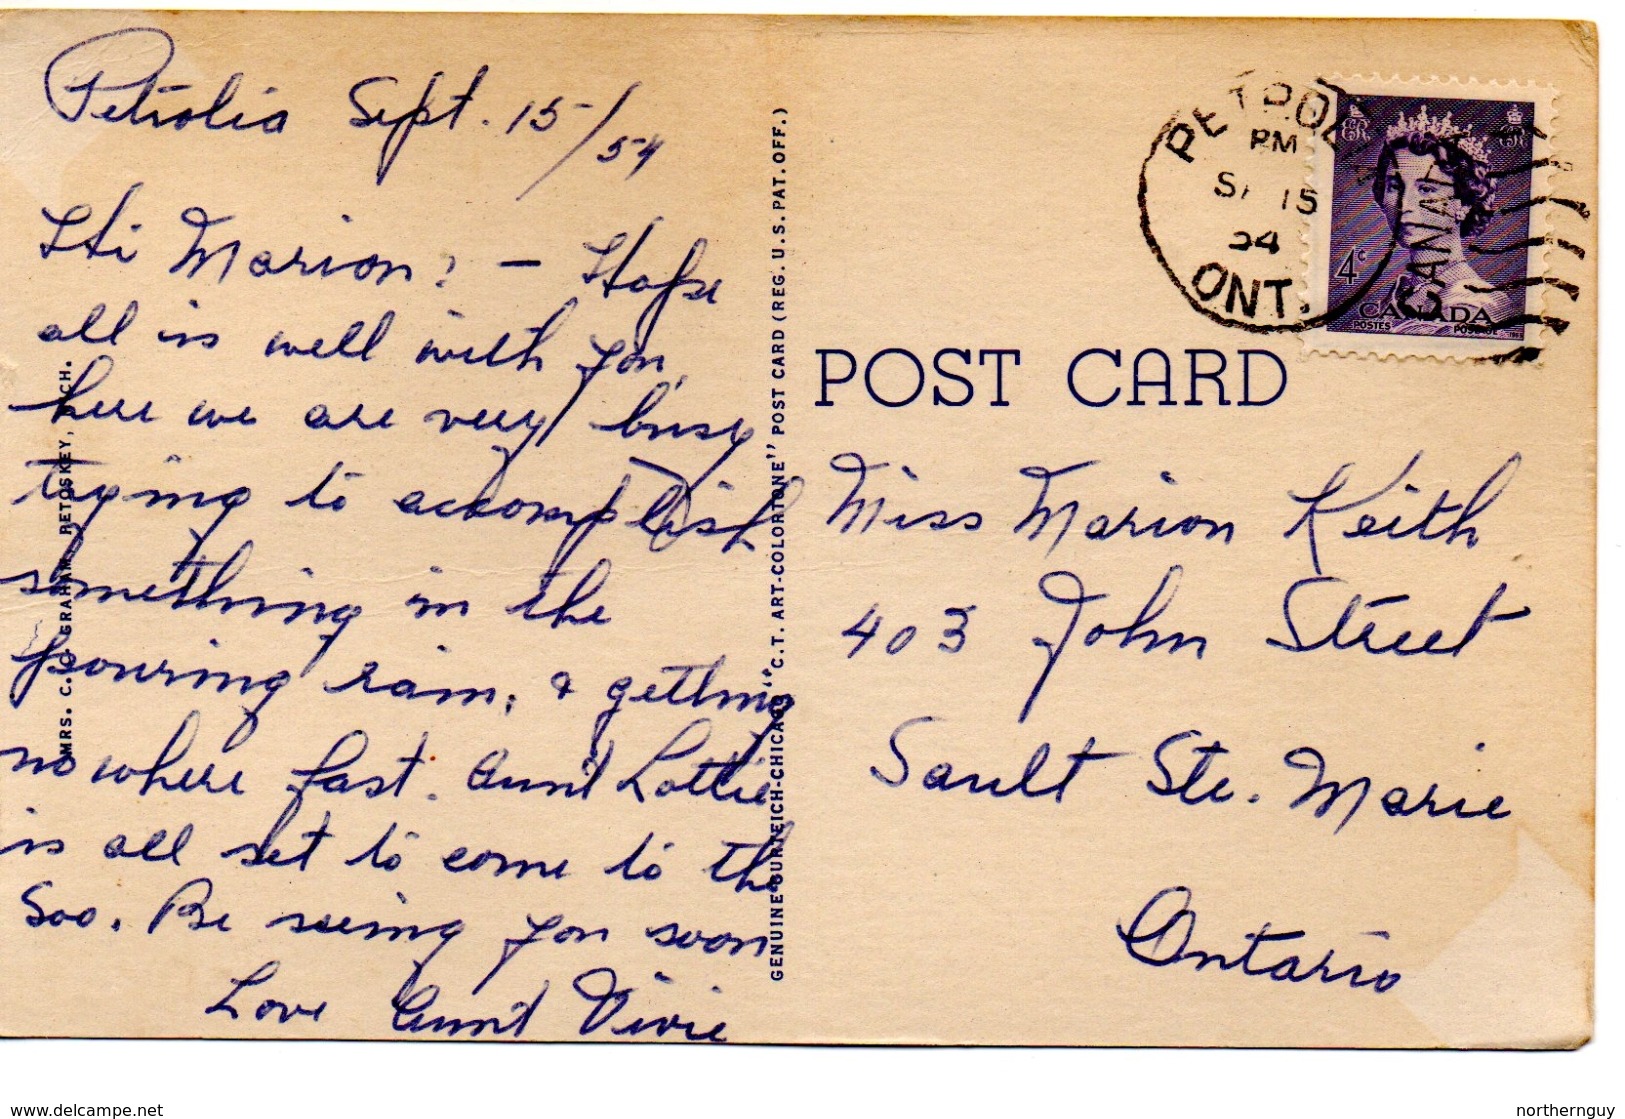 Petrolia Sept. 15/54
Hi Marion! - Hope
all is well with you,
here we are very busy
trying to accomplish
something in the
pouring rain, & getting
nowhere fast. Aunt Lottie
is all set to come to the
Soo. Be seeing you soon
Love Aunt Vivie
MRS. C. C. GRAHAM, PETOSKEY, MICH.
GENUINE CURTEICH-CHICAGO "C.T. ART-COLORTONE" POST CARD (REG. U.S. PAT. OFF.)
PETROLIA
PM
15
54
ONT.
CANADA
4c
CANADA
POSTES POSTAGE
POST CARD
Miss Marion Keith
403 John Street
Sault Ste. Marie
Ontario
delcampe.net
northernguy